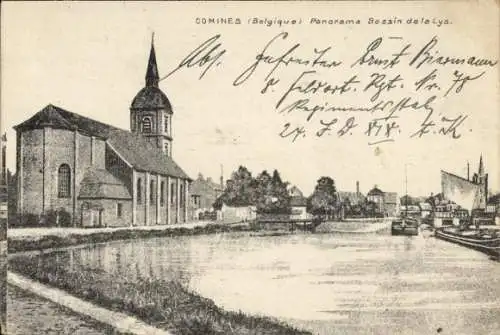 COMINES (Belgique) Panorama Bassin de la Lys.
Abs. Gefreiter Ernst Biermann
8. Feldart. Rgt. Nr. 78
Regimentsstab
24. I. D. XIX. A. K.